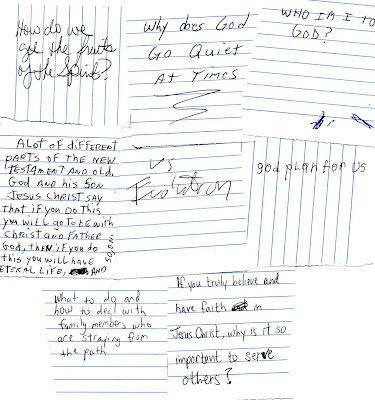 How do we
get the fruits
of the Spirit?
Why does God
Go Quiet
At Times
WHO IA I TO
GOD?
A LOT OF dIFFERENT
PARTS OF THE NEW
TESTAMENT AND OLD.
GOD AND HIS SON
JESUS CHRIST SAY
THAT IF YOU DO THIS
YOU WILL GO TO BE WITH
CHRIST AND FATHER
God, THEN IF YOU do
this YOU WILL HAVE
ETERAL LIFE, AND
SO, ON
VS
Evolution
god plan for us
What to do and
how to deal with
family members who
are straying from
the path
If you truly believe and
have faith in
Jesus Christ, why is it so
important to serve
others?